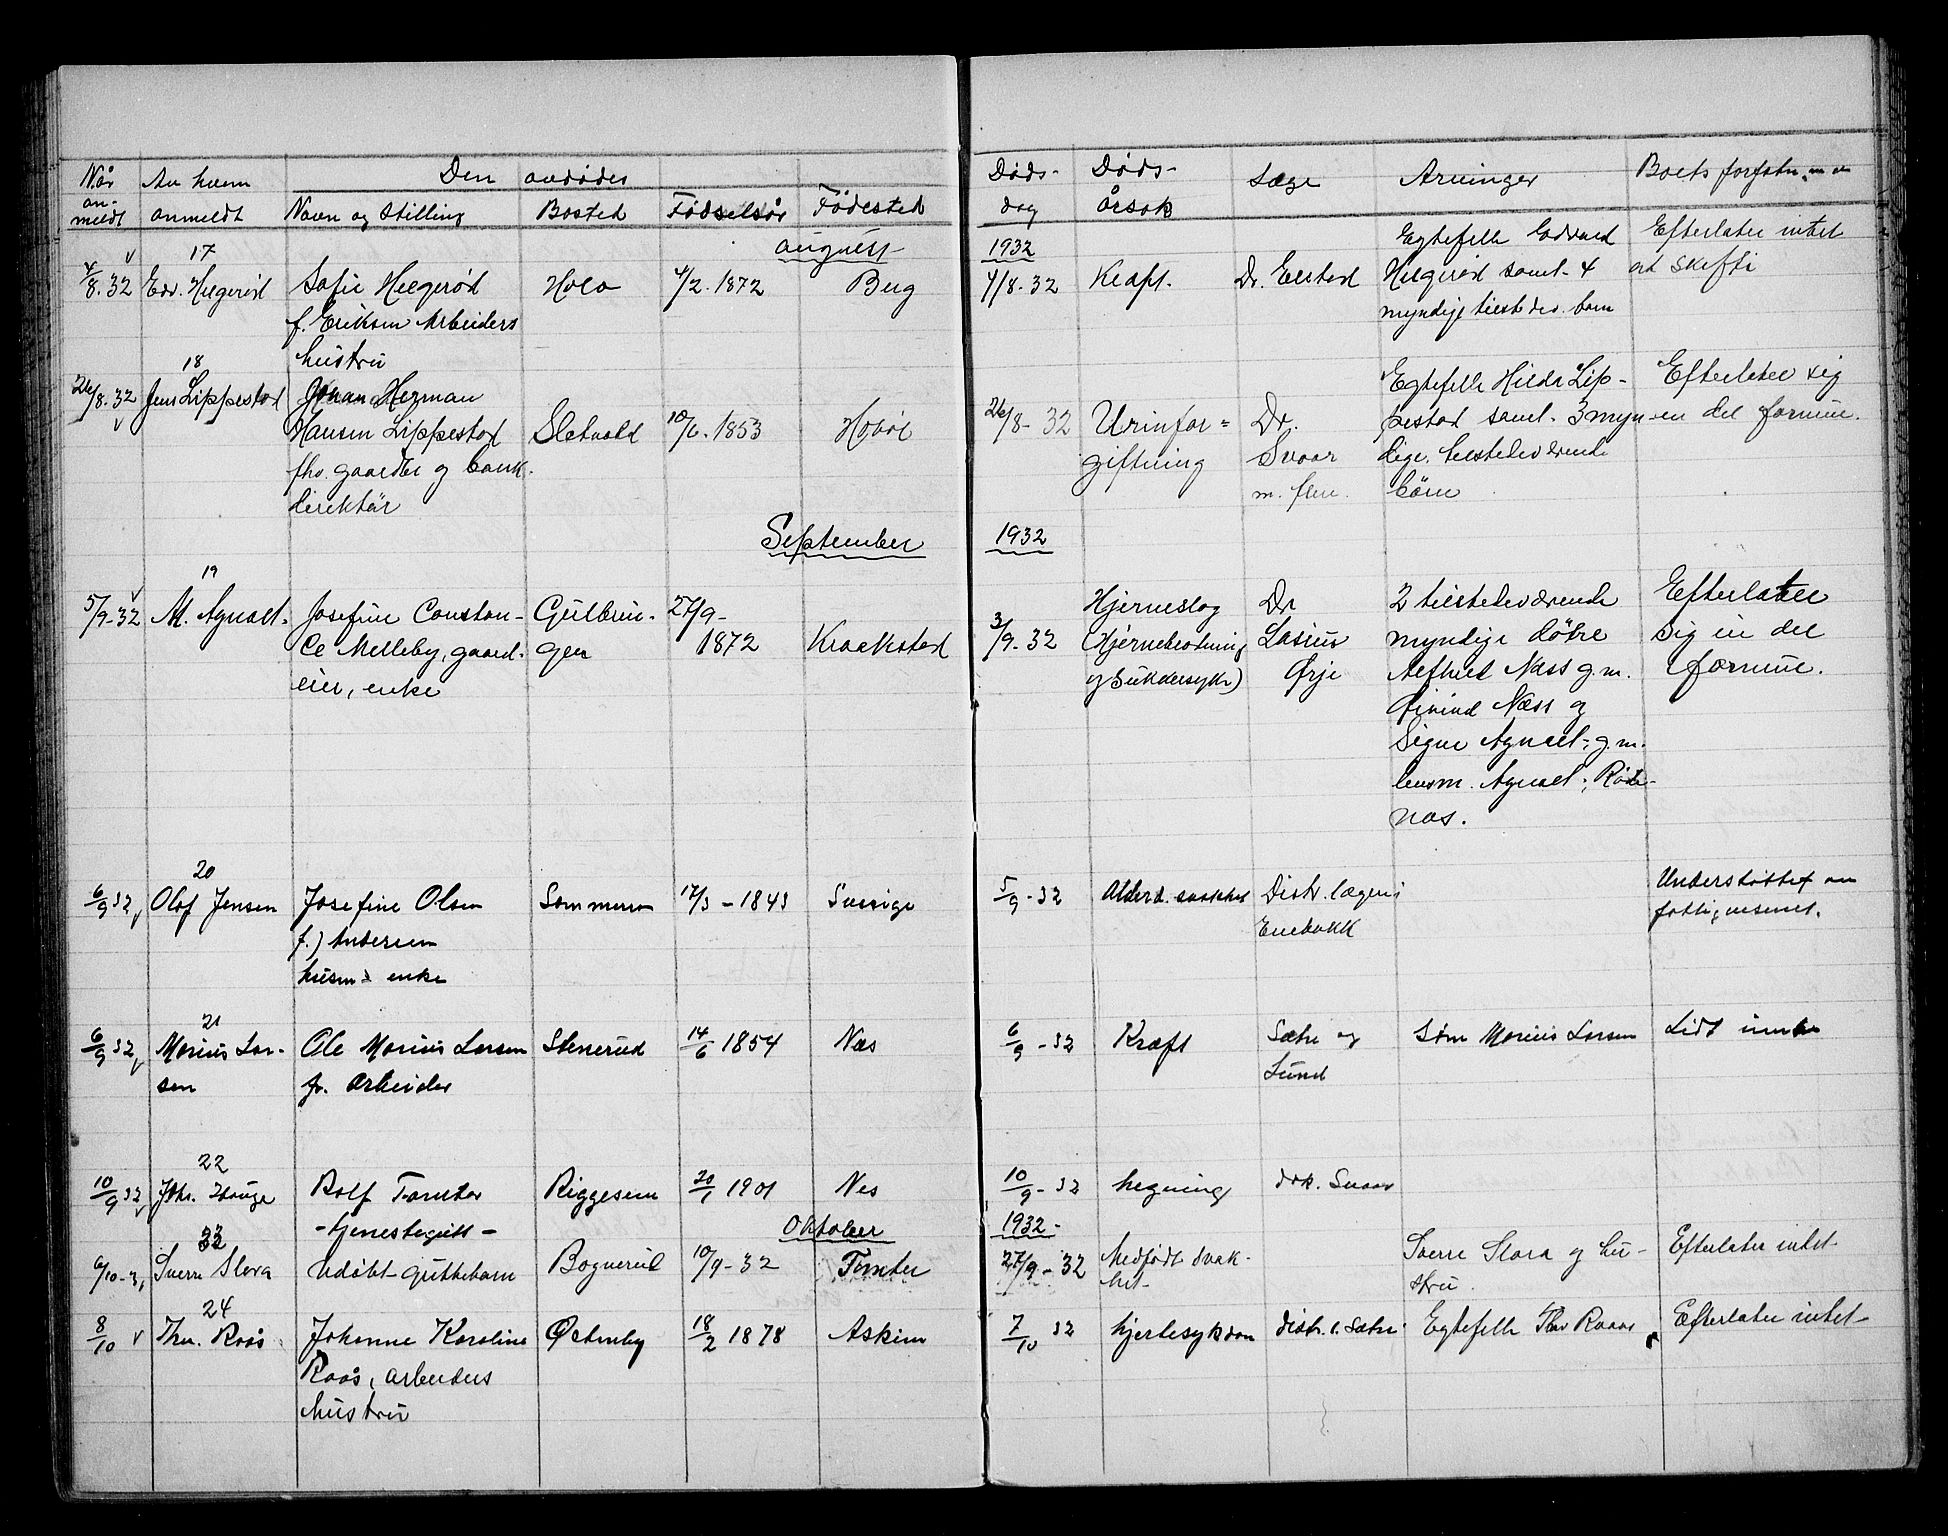 Når an- meldt
Av hvem anmeldt
Den avdødes
Navn og Stilling
Bosted
Fødselsår
Fødested
Døds- dag
Døds- årsak
Læge
Arvinger
Boets forfatn. m v
august
1932
17
4/8. 32
Edv. Helgerød
Sofie Helgerød
f. Eriksen Arbeiders
hustru
4/2. 1872
Berg
4/8. 32
Kræft.
Dr. Elstad
Egtefelle Edvard
Helgerød samt 4
myndige tilstedev. barn
Efterlater intet
at skifte
18
26/8. 32
Jens Lippestad
Johan Herman
Hansen Lippestad
fhv. gaardbr og bank-
direktør
Sletvold
1853
Hobøl
26/8- 32
Urinfor=
giftning
Dr.
Svaar
m. flere.
Egtefelle Hilda Lip-
pestad samt 3 myn-
dige tilstedeværende
børn
Efterlater sig
en del formue.
September
1932
19
5/9-32
M. Agnalt
Josefine Constan-
ce Melleby, gaard-
eier, enke
Gulbrin-
gen
27/9-
1872
Kraakstad
3/9. 32
Hjerneslag
(Hjerneblødning
og Sukkersyke)
Dr
Lasius
Ørje
2 tilstedeværende
myndige døtre
Næss g.m.
Øivind Næss og
Signe Agnalt, g.m.
lensm. Agnalt, Røde-
næs.
Efterlater
sig en del
formue.
20
6/9 32
Olaf Jensen
Josefine Olsen
f.) Andersen
husm. enke
Sommerro
17/3 - 1843
Sverige
5/9 - 32
Alderd. svakhet
Distr. lægen i
Enebakk
Understøttet av
fattigvesenet.
21
6/9 32
Marius Lar-
sen
Ole Marius Larsen
fv. Arbeider
Stenerud
14/6 1854
Næs
6/9 - 32
Kræft
Sætre og
Lund
Søn Marius Larsen
Lidt innbo
22
10/9 32
Johs. Hauge
Rolf Tomter
- tjenestegutt -
Riggesum
20/1 1901
Nes
10/9 - 32
hegning
drk. Svaar
Oktober
1932 -
23
6/10-32
Sverre Slora
Udøbt guttebarn
Bognerud
10/9 - 32
Tomter
27/9 - 32
Medfødt svak-
het
Sverre Slora og hu-
stru.
Efterlater intet
24
8/10
Thv. Raas
Johanne Karoline
Raås, arbeiders
hustru
Østenby
18/2 1878
Askim
7/10 32
hjertesykdom
distr. l. Sætre
Egtefelle Thv Raaas
Efterlater intet